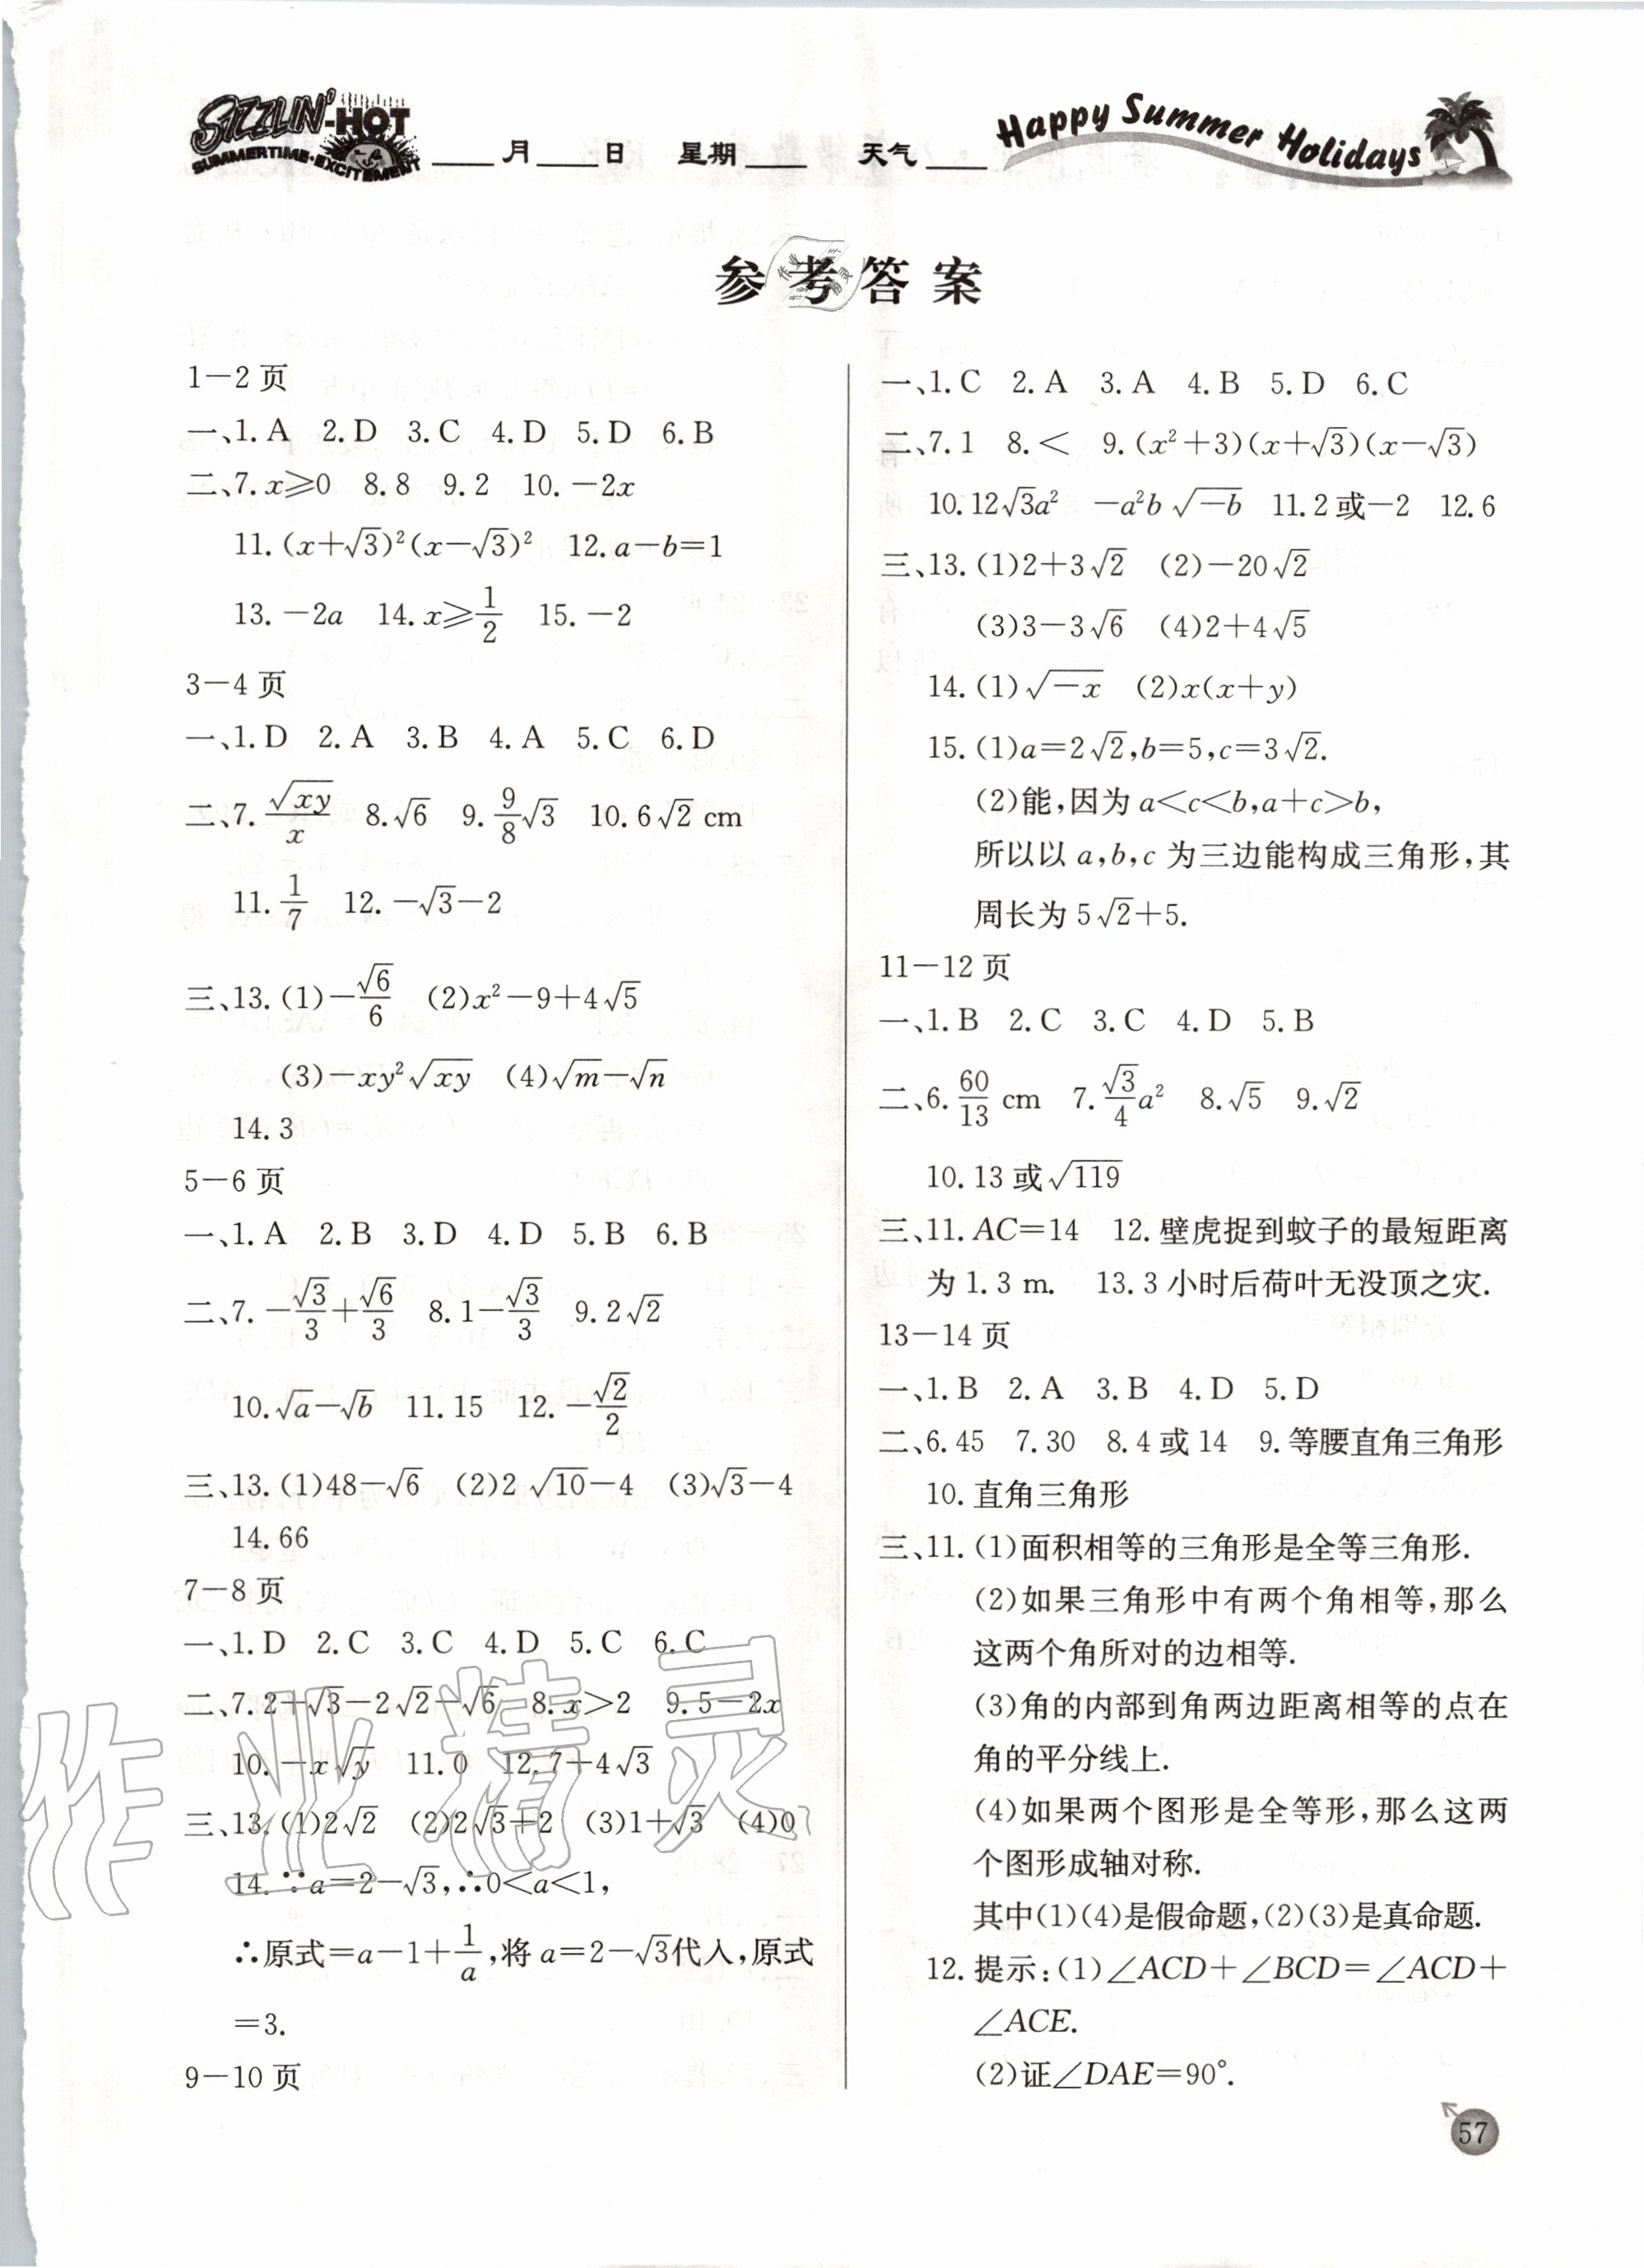 SIZZLIN'-HOT
SUMMERTIME·EXCITEMENT
____月____日 星期____ 天气____
Happy Summer Holidays
参考答案
1—2 页
一、1. A 2. D 3. C 4. D 5. D 6. B
二、7. x⩾0 8. 8 9. 2 10. －2x
11. (x＋√3)²(x－√3)² 12. a－b＝1
13. －2a 14. x⩾1/2 15. －2
3—4 页
一、1. D 2. A 3. B 4. A 5. C 6. D
二、7. √(xy)/x 8. √6 9. 9/8√3 10. 6√2 cm
11. 1/7 12. －√3－2
三、13. (1)－√6/6 (2)x²－9＋4√5
(3)－xy²√(xy) (4)√m－√n
14. 3
5—6 页
一、1. A 2. B 3. D 4. D 5. B 6. B
二、7. －√3/3＋√6/3 8. 1－√3/3 9. 2√2
10. √a－√b 11. 15 12. －√2/2
三、13. (1)48－√6 (2)2√10－4 (3)√3－4
14. 66
7—8 页
一、1. D 2. C 3. C 4. D 5. C 6. C
二、7. 2＋√3－2√2－√6 8. x＞2 9. 5－2x
10. －x√y 11. 0 12. 7＋4√3
三、13. (1)2√2 (2)2√3＋2 (3)1＋√3 (4)0
14. ∵a＝2－√3,∴0＜a＜1,
∴原式＝a－1＋1/a,将 a＝2－√3代入,原式
＝3.
9—10 页
一、1. C 2. A 3. A 4. B 5. D 6. C
二、7. 1 8. ＜ 9. (x²＋3)(x＋√3)(x－√3)
10. 12√3a² －a²b√(－b) 11. 2 或－2 12. 6
三、13. (1)2＋3√2 (2)－20√2
(3)3－3√6 (4)2＋4√5
14. (1)√(－x) (2)x(x＋y)
15. (1)a＝2√2,b＝5,c＝3√2.
(2)能,因为 a＜c＜b,a＋c＞b,
所以以 a,b,c 为三边能构成三角形,其
周长为 5√2＋5.
11—12 页
一、1. B 2. C 3. C 4. D 5. B
二、6. 60/13 cm 7. √3/4a² 8. √5 9. √2
10. 13 或√119
三、11. AC＝14 12. 壁虎捉到蚊子的最短距离
为 1. 3 m. 13. 3 小时后荷叶无没顶之灾.
13—14 页
一、1. B 2. A 3. B 4. D 5. D
二、6. 45 7. 30 8. 4 或 14 9. 等腰直角三角形
10. 直角三角形
三、11. (1)面积相等的三角形是全等三角形.
(2)如果三角形中有两个角相等,那么
这两个角所对的边相等.
(3)角的内部到角两边距离相等的点在
角的平分线上.
(4)如果两个图形是全等形,那么这两
个图形成轴对称.
其中(1)(4)是假命题,(2)(3)是真命题.
12. 提示:(1)∠ACD＋∠BCD＝∠ACD＋
∠ACE.
(2)证∠DAE＝90°.
57
作业精灵